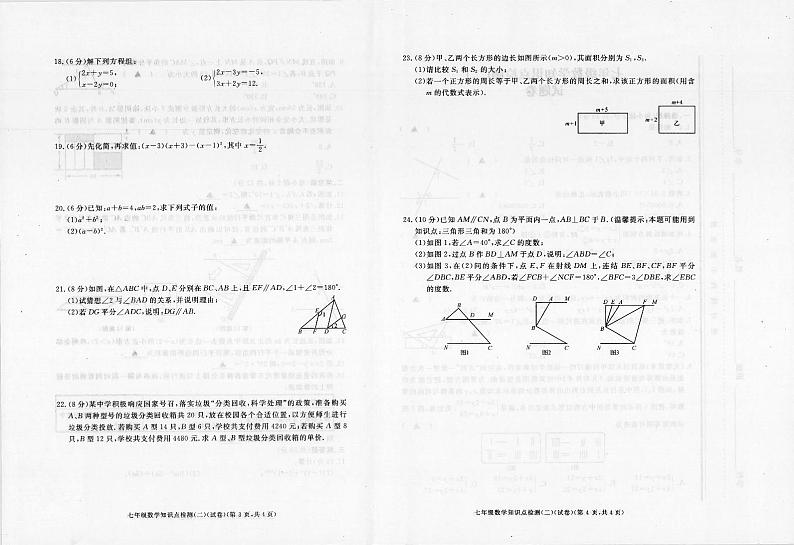 18.(6分)解下列方程组:
(1){2x+y=5, x-2y=0;
(2){2x-3y=-5, 3x+2y=12.
19.(6分)先化简,再求值:(x-3)(x+3)-(x-1)²,其中x=1/2.
20.(6分)已知:a+b=4,ab=2,求下列式子的值:
(1)a²+b²;
(2)(a-b)².
21.(8分)如图,在△ABC中,点D、E分别在BC、AB上,且EF∥AD,∠1+∠2=180°.
(1)试猜想∠2与∠BAD的关系,并说明理由;
(2)若DG平分∠ADC,说明,DG∥AB.
B F D C
22.(8分)某中学积极响应国家号召,落实垃圾“分类回收,科学处理”的政策,准备购买
A、B两种型号的垃圾分类回收箱共20只,放在校园各个合适位置,以方便师生进行
垃圾分类投放.若购买A型14只,B型6只,学校共支付费用4240元;若购买A型8
只,B型12只,学校共支付费用4480元.求A型、B型垃圾分类回收箱的单价.
七年级数学知识点检测(二)(试卷)(第3页,共4页)
23.(8分)甲、乙两个长方形的边长如图所示(m>0),其面积分别为S₁,S₂.
(1)请比较S₁和S₂的大小;
(2)若一个正方形的周长等于甲、乙两个长方形的周长之和,求该正方形的面积(用含
m的代数式表示).
m+5
m+1 甲
m+4
m+2 乙
24.(10分)已知AM∥CN,点B为平面内一点,AB⊥BC于B.(温馨提示:本题可能用到
知识点:三角形三角和为180°)
(1)如图1,若∠A=40°,求∠C的度数;
(2)如图2,过点B作BD⊥AM于点D,说明:∠ABD=∠C;
(3)如图3,在(2)问的条件下,点E、F在射线DM上,连结BE、BF、CF,BF平分
∠DBC,BE平分∠ABD,若∠FCB+∠NCF=180°,∠BFC=3∠DBE,求∠EBC
的度数.
B
A D M
N C
图1
D A M
B
N C
图2
D E A F M
B
N C
图3
七年级数学知识点检测(二)(试卷)(第4页,共4页)